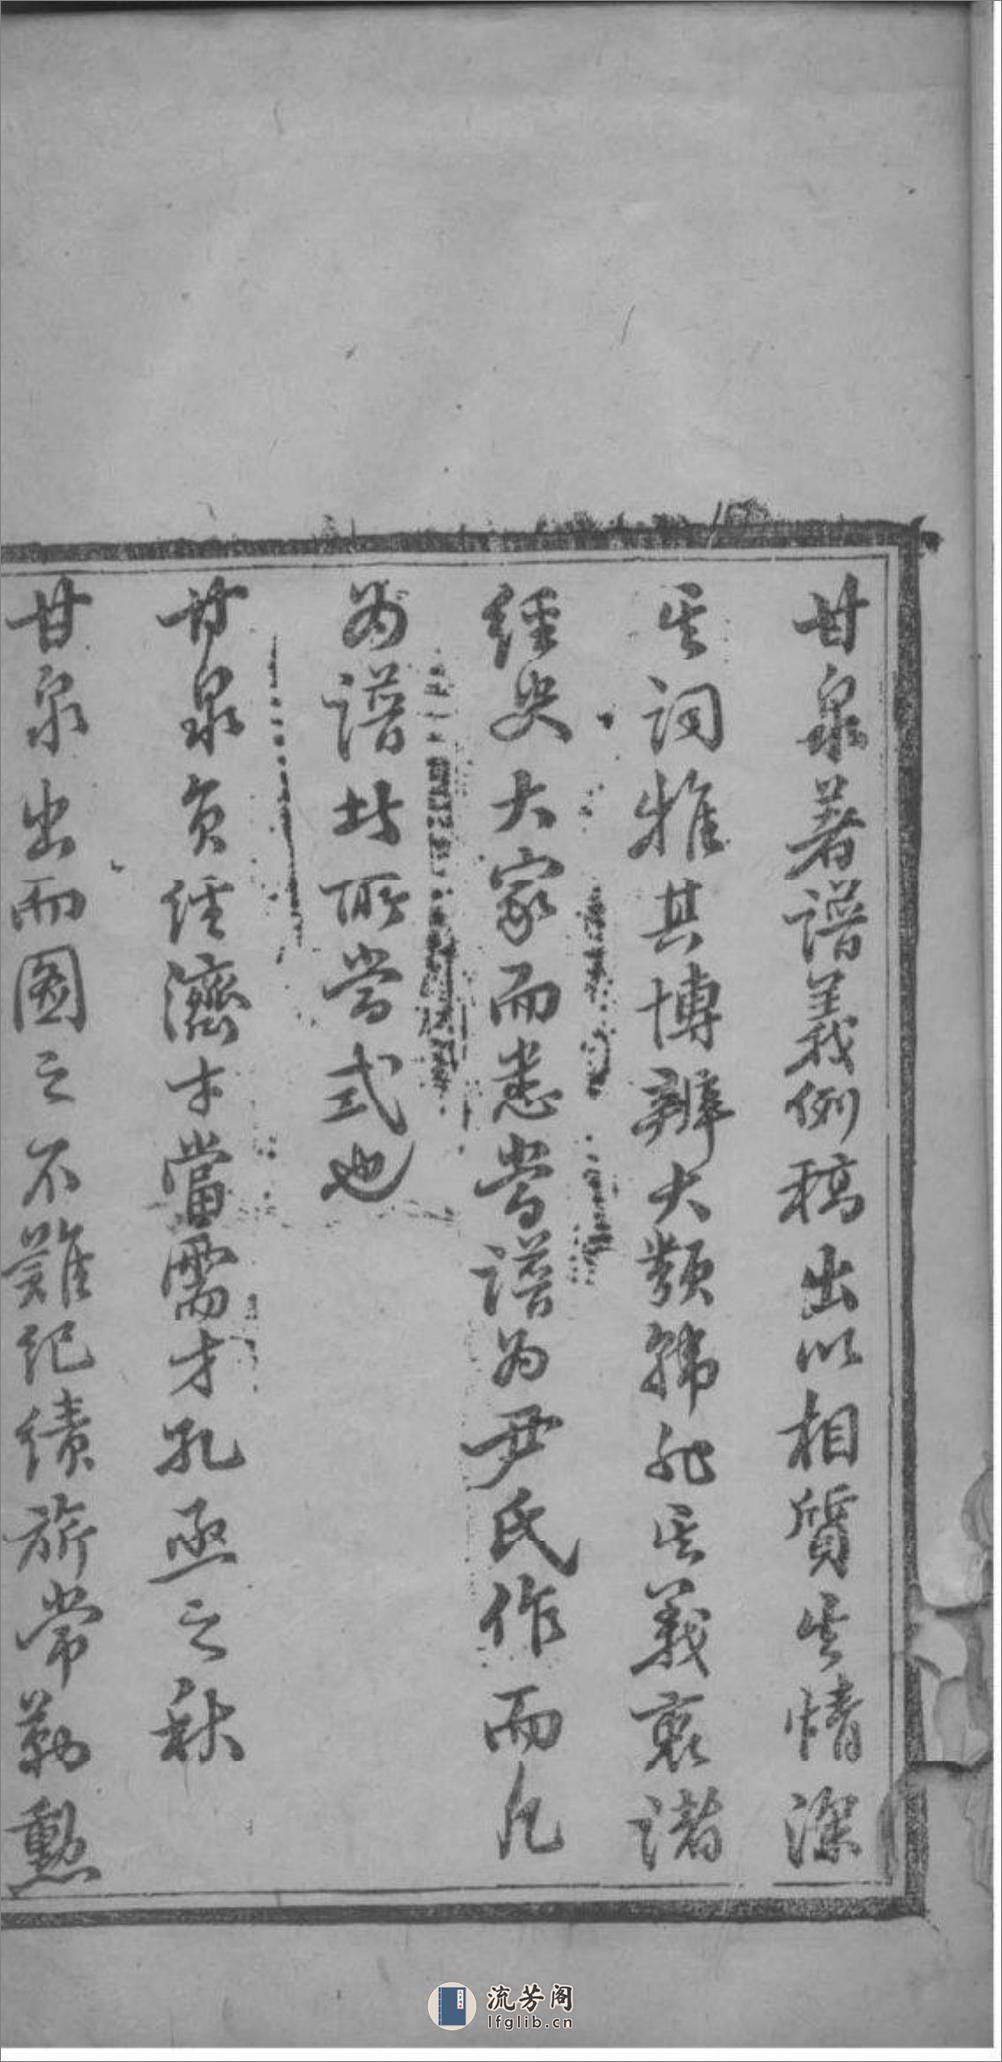 甘泉著譜義例稿出以相質其情深
其詞雅其博辨大類韓非其義衷諸
經史大家而悉當譜为尹氏作而凡
为譜者所當式也
甘泉負經濟才當需才孔亟之秋
甘泉出而圖之不難紀績旂常勒勲
流芳阁
lfglib.cn